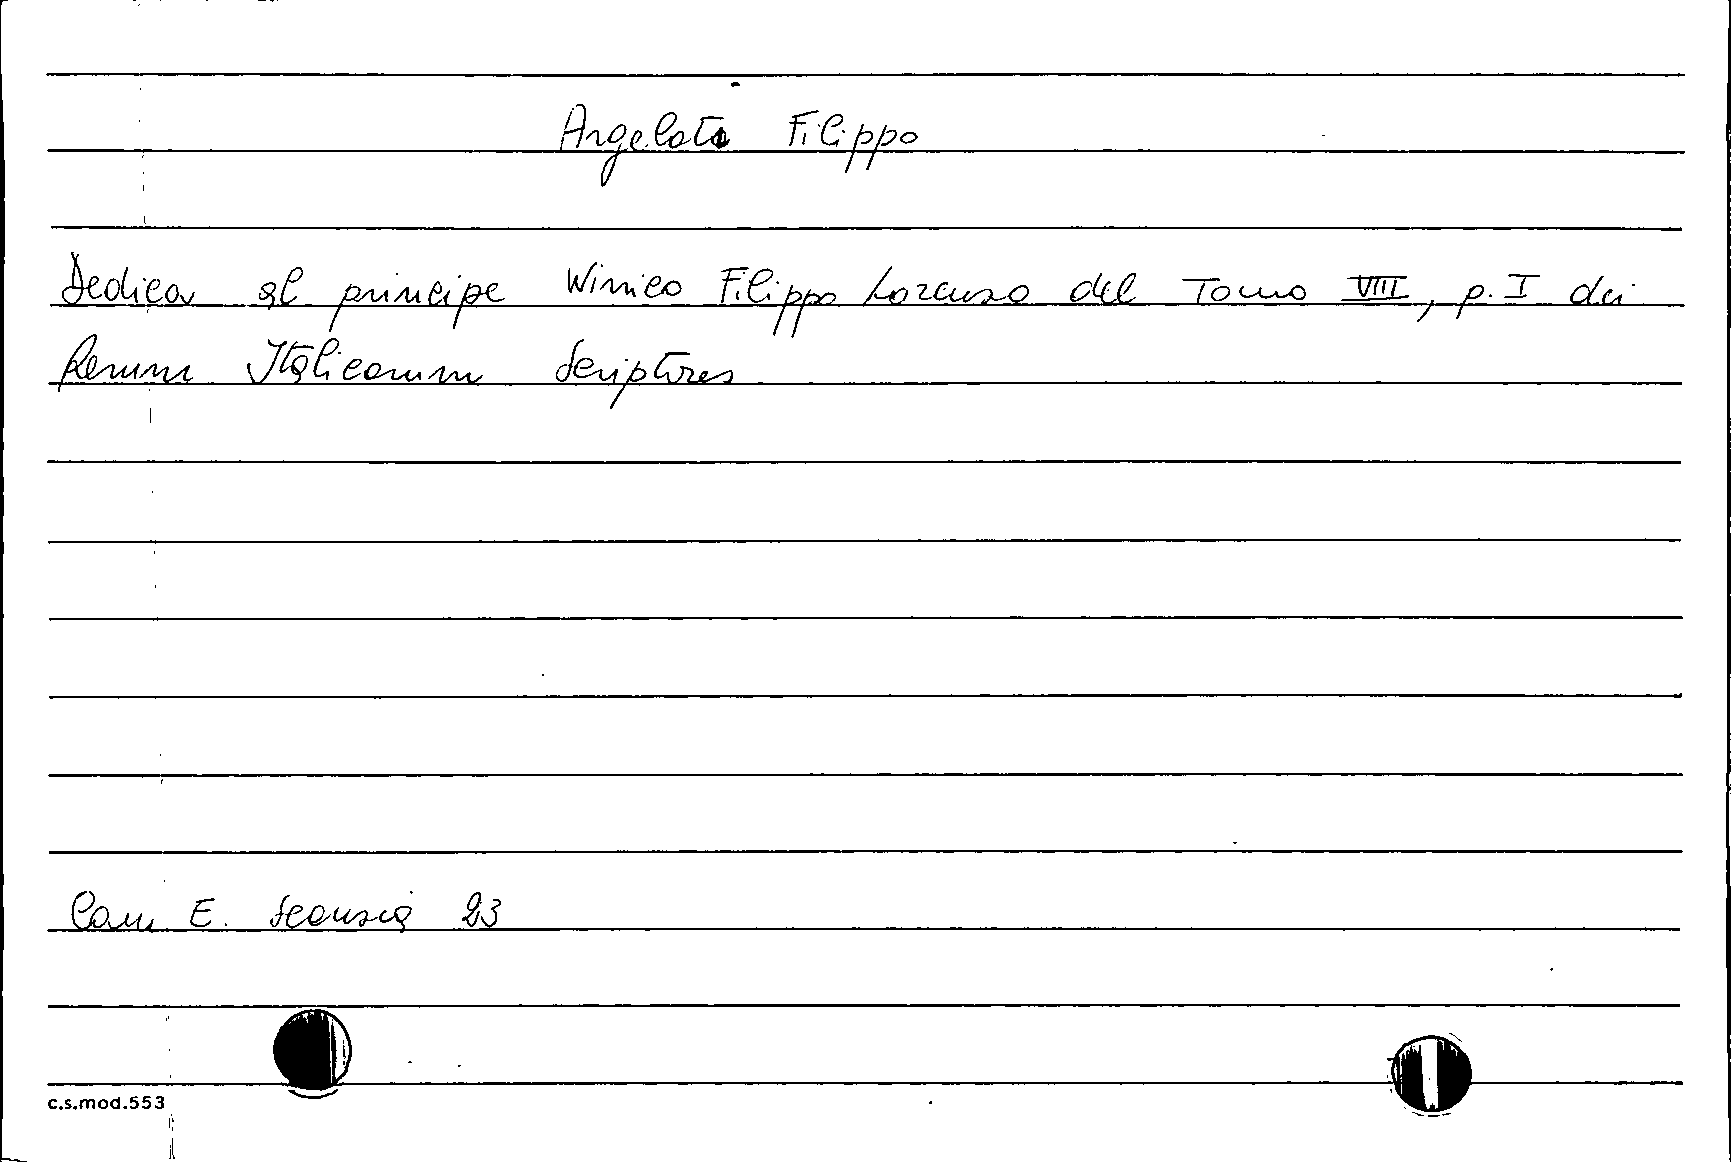 Argelati Filippo
Dedica al principe Wirrico Filippo Lorenzo del Tomo VIII, p. I dei
Rerum Italicarum Scriptores
Cam E. Scansia 23
c.s.mod.553